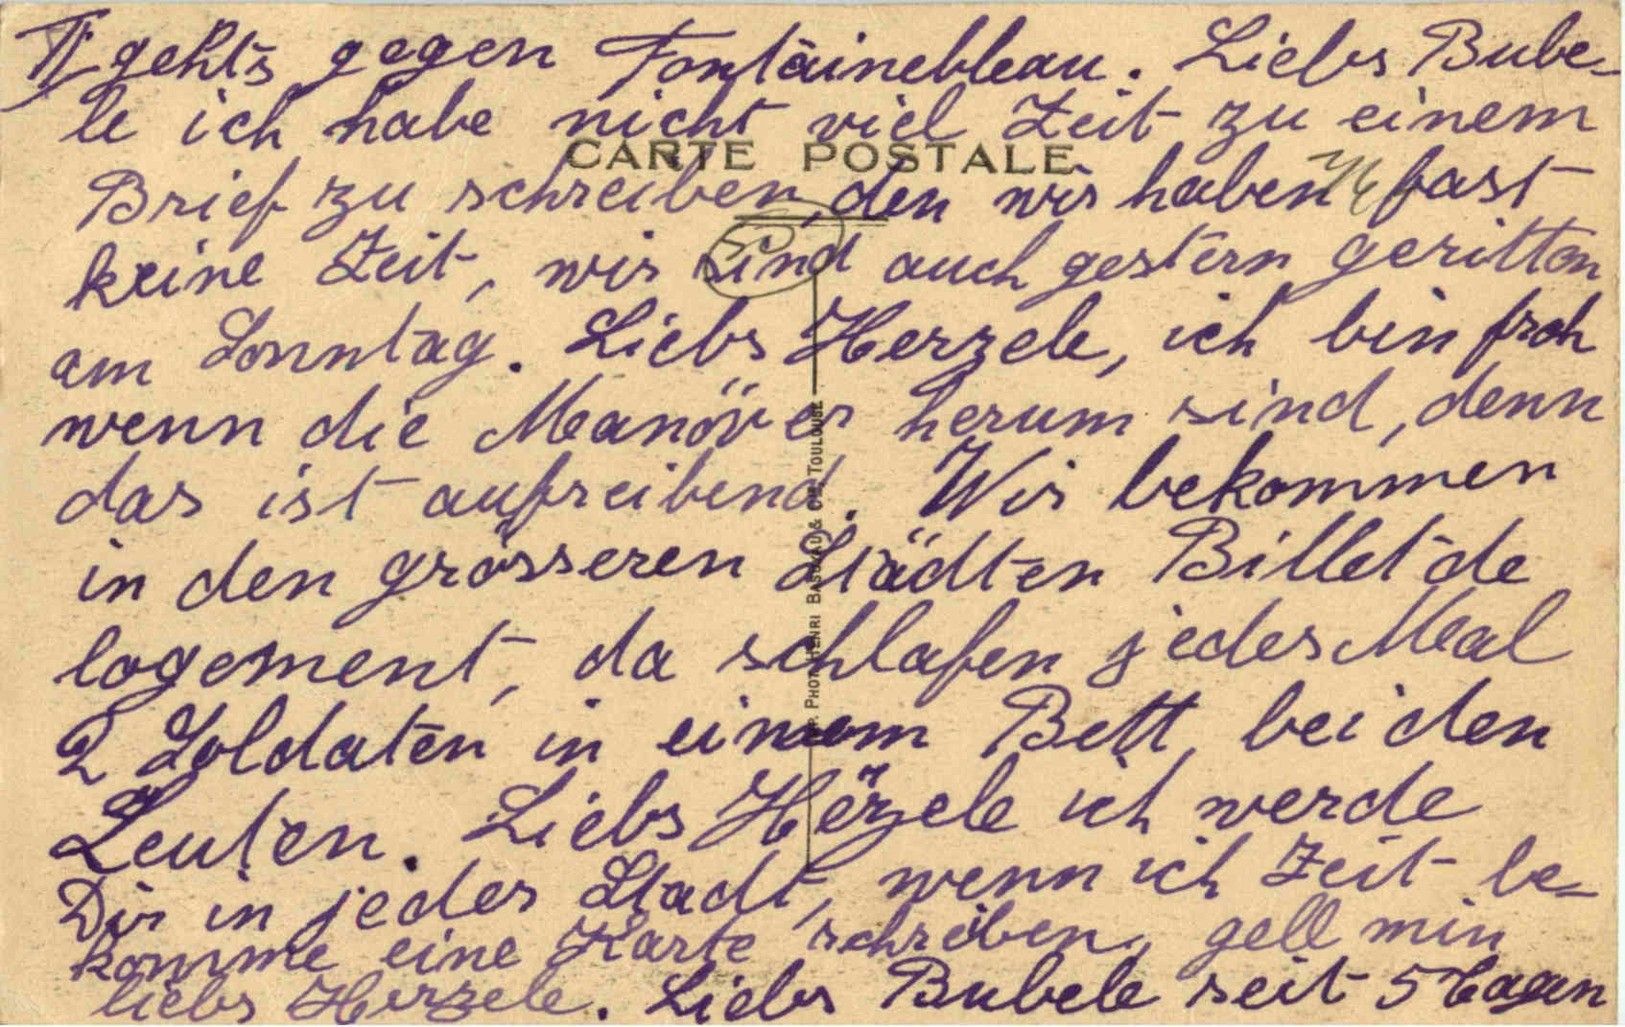 II gehts gegen Fontainebleau. Liebs Bube-
le ich habe nicht viel Zeit zu einem
CARTE POSTALE
Brief zu schreiben, den wir haben fast
keine Zeit, wir sind auch gestern geritten
am Sonntag. Liebs Herzele, ich bin froh
wenn die Manöver herum sind, denn
das ist aufreibend. Wir bekommen
in den grösseren Städten Billet de
logement, da schlafen jedes Mal
2 Soldaten in einem Bett, bei den
Leuten. Liebs Herzele ich werde
Dir in jeder Stadt, wenn ich Zeit be-
komme eine Karte schreiben, gell min
liebs Herzele. Liebs Bubele seit 5 Tagen
PHOT. HENRI & CIE TOULOUSE